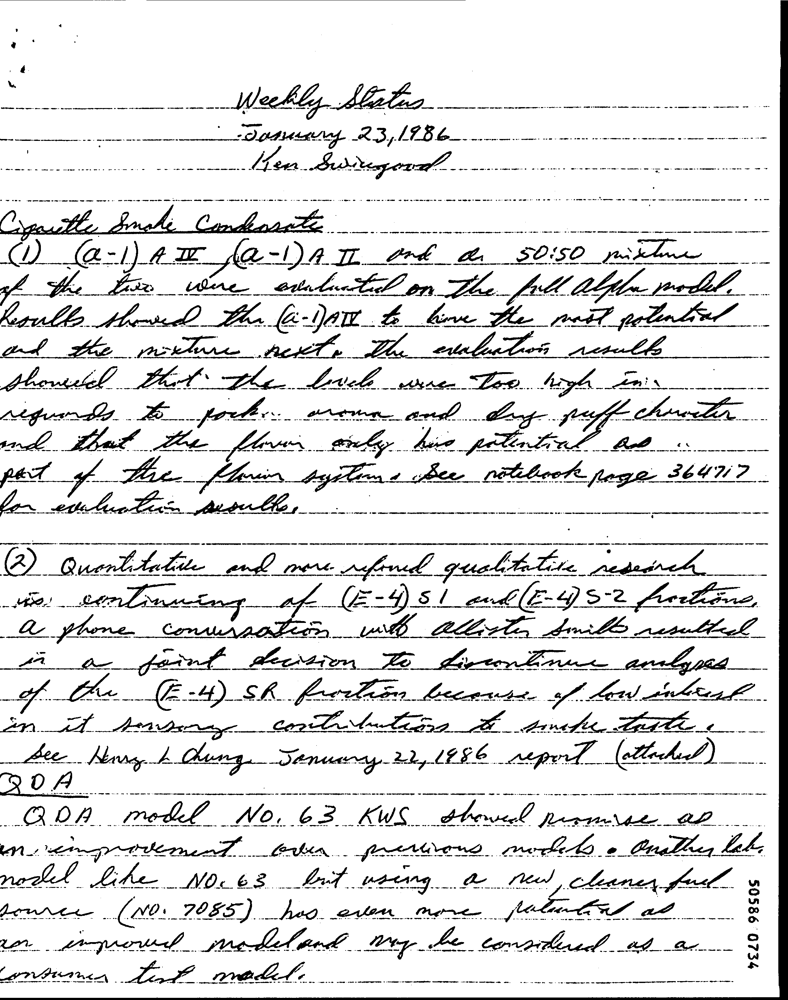 Weekly Status
January 23, 1986
Ken Swicegood
Cigarette Smoke Condensate
(1) (a-1) A IV, (a-1) A II and a 50:50 mixture
of the two were evaluated on the full Alpha model.
Results showed the (a-1) A IV to have the most potential
and the mixture next. The evaluation results
showed that the levels were too high in
reguards to pack aroma and dry puff character
and that the flavor only has potential as
part of the flavor system. See notebook page 364717
for evaluation results.
(2) Quantitative and more refined qualitative research
is continuing of (E-4) S1 and (E-4) S-2 fractions.
A phone conversation with Allister Smith resulted
in a joint decision to discontinue analyses
of the (E-4) SR fraction because of low interest
in it sensory contributions to smoke taste.
See Henry L Chung January 22, 1986 report (attached)
QDA
QDA model NO. 63 KWS showed promise as
an improvement over previous models. Another lab.
model like NO. 63 but using a new, cleaner fuel
source (NO. 7085) has even more potential as
an improved model and may be considered as a
consumer test model.
50586 0734